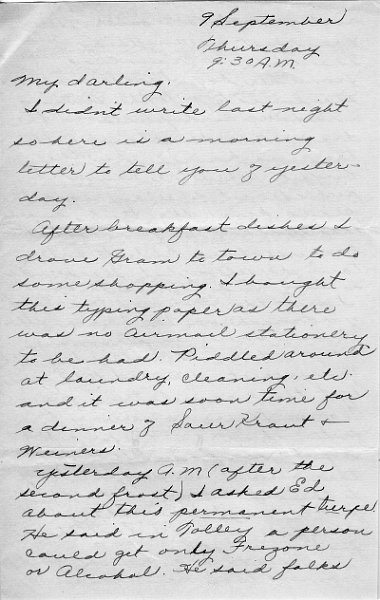 9 September
Thursday
9:30 A.M.
My darling.
I didn't write last night
so here is a morning
letter to tell you of yester-
day.
After breakfast dishes I
drove Gram to town to do
some shopping. I bought
this typing paper as there
was no airmail stationery
to be had. Piddled around
at laundry, cleaning, etc.
and it was soon time for
a dinner of Saur Kraut +
Weiners.
Yesterday A.M (after the
second frost) I asked Ed
about this permanent
He said in Tolley a person
could get only Frezone
or Alcohol. He said folks